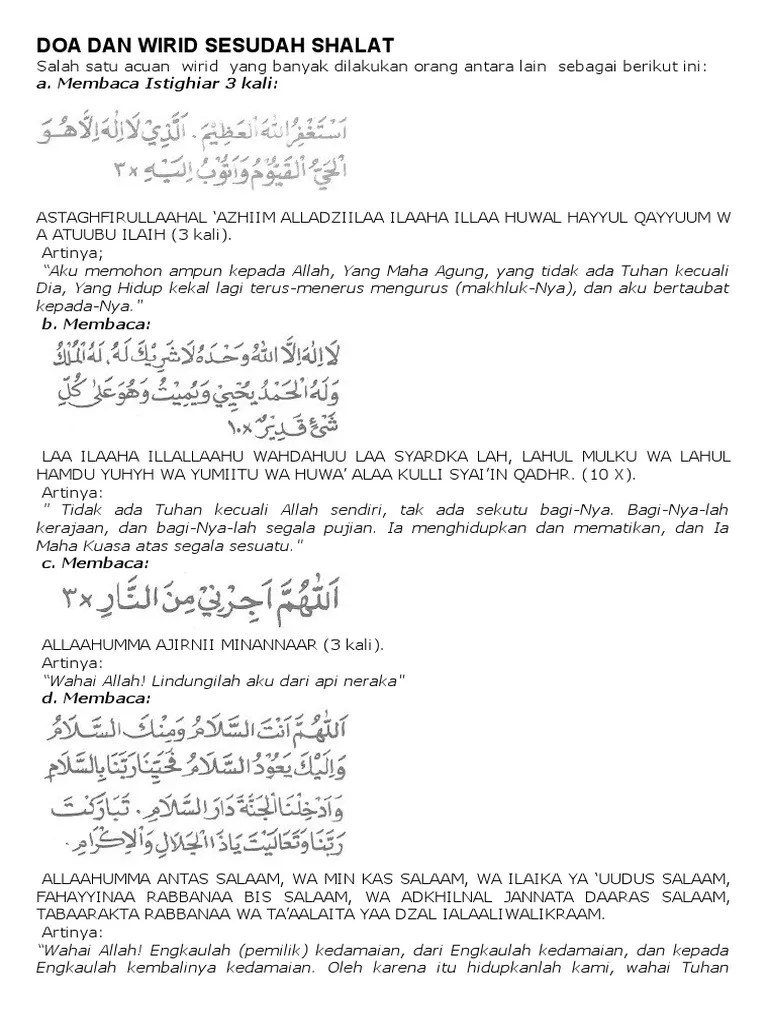 DOA DAN WIRID SESUDAH SHALAT
Salah satu acuan wirid yang banyak dilakukan orang antara lain sebagai berikut ini:
a. Membaca Istighiar 3 kali:
اَسْتَغْفِرُ اللهَ الْعَظِيْمَ. اَلَّذِيْ لَا اِلٰهَ اِلَّا هُوَ
الْحَيُّ الْقَيُّوْمُ وَاَتُوْبُ اِلَيْهِ ٣x
ASTAGHFIRULLAAHAL ‘AZHIIM ALLADZIILAA ILAAHA ILLAA HUWAL HAYYUL QAYYUUM W
A ATUUBU ILAIH (3 kali).
Artinya;
“Aku memohon ampun kepada Allah, Yang Maha Agung, yang tidak ada Tuhan kecuali
Dia, Yang Hidup kekal lagi terus-menerus mengurus (makhluk-Nya), dan aku bertaubat
kepada-Nya."
b. Membaca:
لَا اِلٰهَ اِلَّا اللهُ وَحْدَهُ لَا شَرِيْكَ لَهُ، لَهُ الْمُلْكُ
وَلَهُ الْحَمْدُ يُحْيِيْ وَيُمِيْتُ وَهُوَ عَلٰى كُلِّ
شَيْئٍ قَدِيْرٌ ١٠x
LAA ILAAHA ILLALLAAHU WAHDAHUU LAA SYARDKA LAH, LAHUL MULKU WA LAHUL
HAMDU YUHYH WA YUMIITU WA HUWA’ ALAA KULLI SYAI’IN QADHR. (10 X).
Artinya:
" Tidak ada Tuhan kecuali Allah sendiri, tak ada sekutu bagi-Nya. Bagi-Nya-lah
kerajaan, dan bagi-Nya-lah segala pujian. Ia menghidupkan dan mematikan, dan Ia
Maha Kuasa atas segala sesuatu."
c. Membaca:
اَللّٰهُمَّ اَجِرْنِيْ مِنَ النَّارِ ٣x
ALLAAHUMMA AJIRNII MINANNAAR (3 kali).
Artinya:
“Wahai Allah! Lindungilah aku dari api neraka"
d. Membaca:
اَللّٰهُمَّ اَنْتَ السَّلَامُ وَمِنْكَ السَّلَامُ
وَاِلَيْكَ يَعُوْدُ السَّلَامُ فَحَيِّنَا رَبَّنَا بِالسَّلَامِ
وَاَدْخِلْنَا الْجَنَّةَ دَارَ السَّلَامِ. تَبَارَكْتَ
رَبَّنَا وَتَعَالَيْتَ يَاذَا الْجَلَالِ وَالْاِكْرَامِ.
ALLAAHUMMA ANTAS SALAAM, WA MIN KAS SALAAM, WA ILAIKA YA ‘UUDUS SALAAM,
FAHAYYINAA RABBANAA BIS SALAAM, WA ADKHILNAL JANNATA DAARAS SALAAM,
TABAARAKTA RABBANAA WA TA’AALAITA YAA DZAL IALAALIWALIKRAAM.
Artinya:
“Wahai Allah! Engkaulah (pemilik) kedamaian, dari Engkaulah kedamaian, dan kepada
Engkaulah kembalinya kedamaian. Oleh karena itu hidupkanlah kami, wahai Tuhan